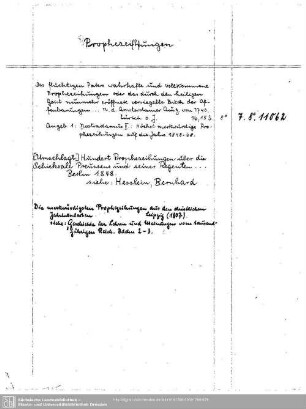 Prophezeiungen
Des flüchtigen Paters wahrhafte und vollkommene
Prophezeihungen oder das durch den heiligen
Geist nunmehr eröffnete versiegelte Buch der Of-
fenbarungen ... N. d. Amsterdamer Ausg. von 1740.
o. J. 8° 7. 8°. 11062
Angeb. 1: Nostradamus II. höchst merkwürdige Pro-
phezeihungen auf die Jahre 1848-60.
[Umschlagt.] Hundert Prophezeihungen über die
Schicksale Preussens und seiner Regenten ...
Berlin 1848.
siehe: Hesslein, Bernhard
Die merkwürdigsten Prophezeihungen aus den christlichen
Jahrhunderten. Leipzig (1807).
siehe: Geschichte der Lehren und Meinungen vom tausend-
jährigen Reich. Bdchn 2-3.
Sächsische Landesbibliothek -
Staats- und Universitätsbibliothek Dresden